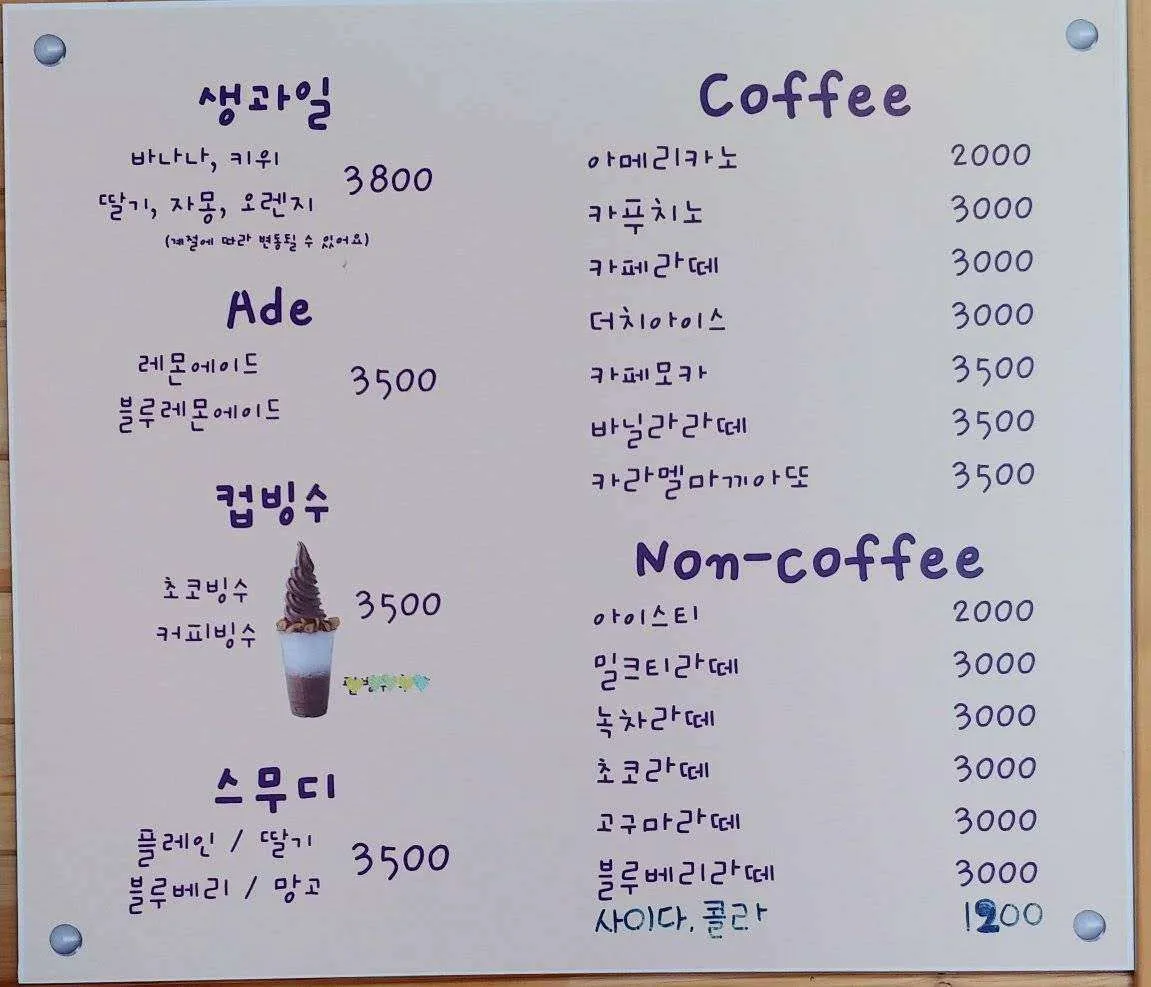 생과일
바나나, 키위
딸기, 자몽, 오렌지
3800
(계절에 따라 변동될 수 있어요)
Ade
레몬에이드
블루레몬에이드
3500
컵빙수
초코빙수
커피빙수
3500
스무디
플레인 / 딸기
블루베리 / 망고
3500
Coffee
아메리카노 2000
카푸치노 3000
카페라떼 3000
더치아이스 3000
카페모카 3500
바닐라라떼 3500
카라멜마끼아또 3500
Non-coffee
아이스티 2000
밀크티라떼 3000
녹차라떼 3000
초코라떼 3000
고구마라떼 3000
블루베리라떼 3000
사이다. 콜라 1200